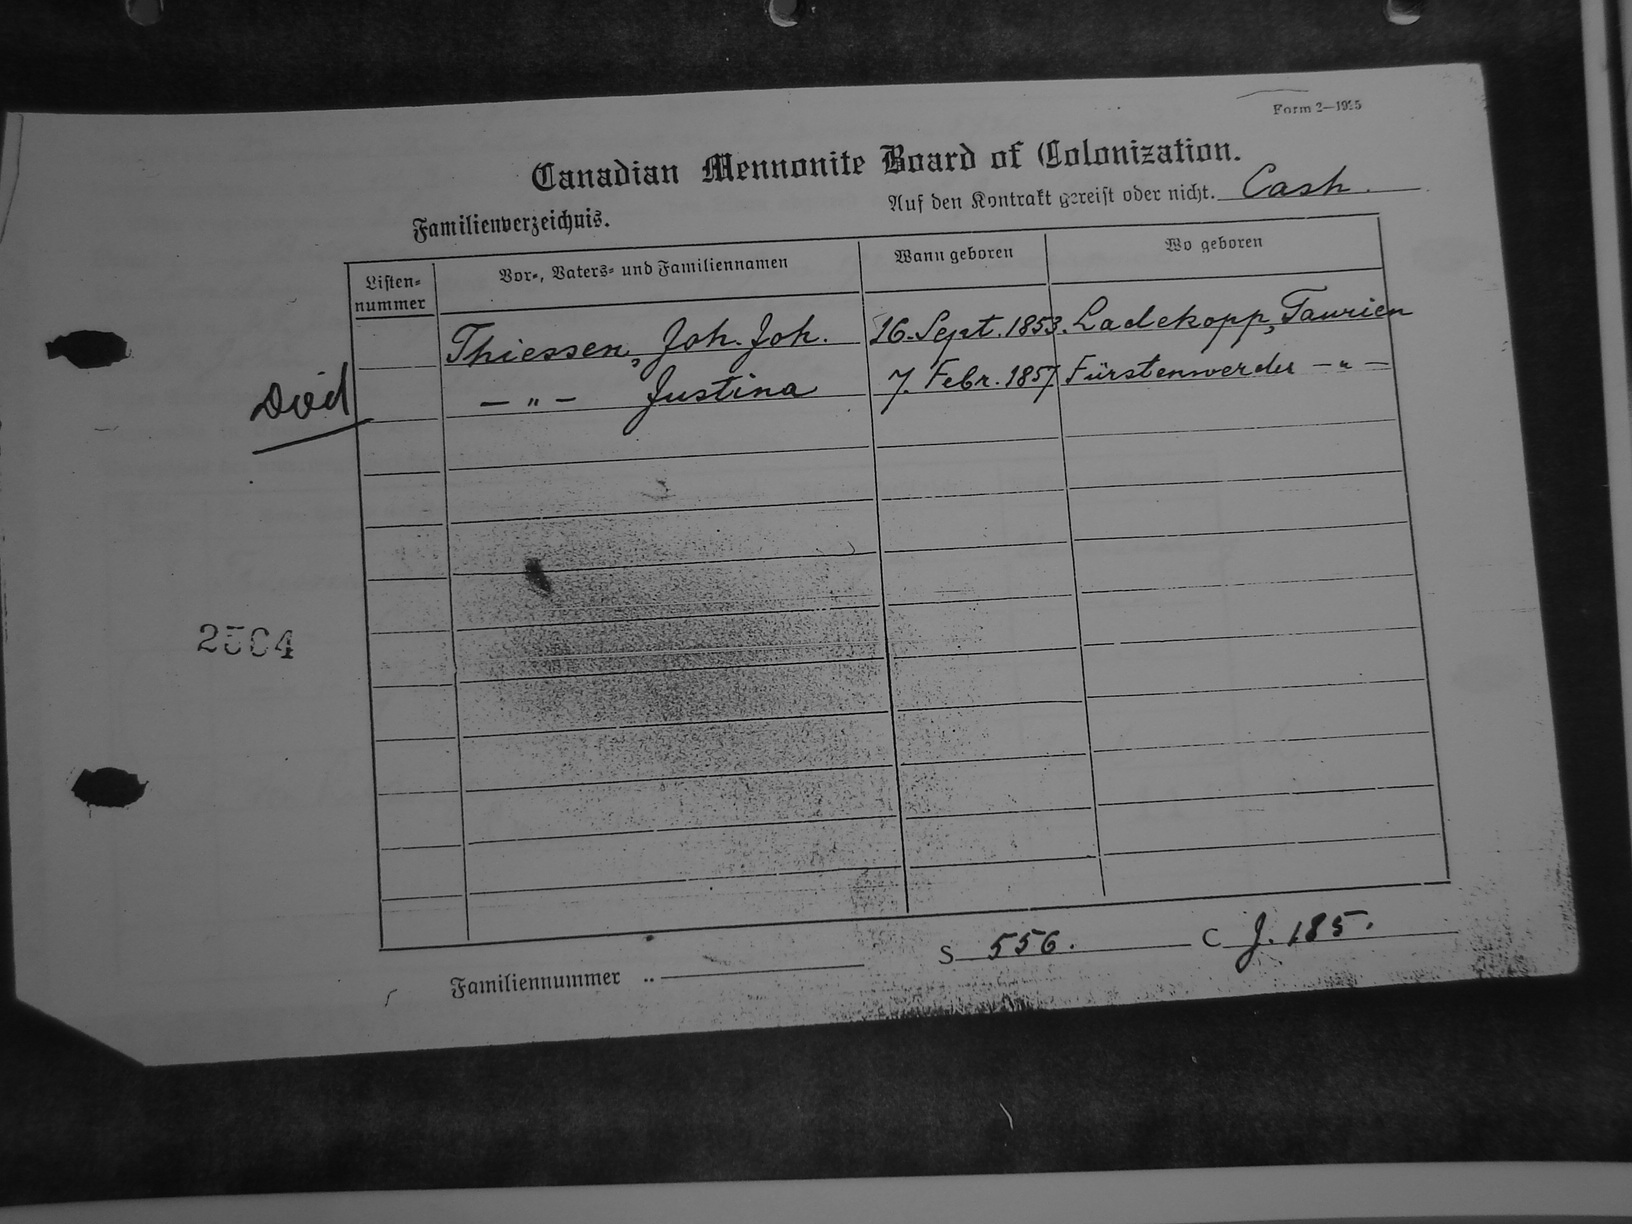 Form 2—1925
Canadian Mennonite Board of Colonization.
Auf den Kontrakt gereist oder nicht. Cash.
Familienverzeichnis.
Listen-nummer Vor-, Vaters- und Familiennamen Wann geboren Wo geboren
Thiessen, Joh. Joh. 16. Sept. 1853. Ladekopp, Taurien
Died — " — Justina 7. Febr. 1857 Fürstenwerder — " —
2504
S 556. C J. 185.
Familiennummer ..